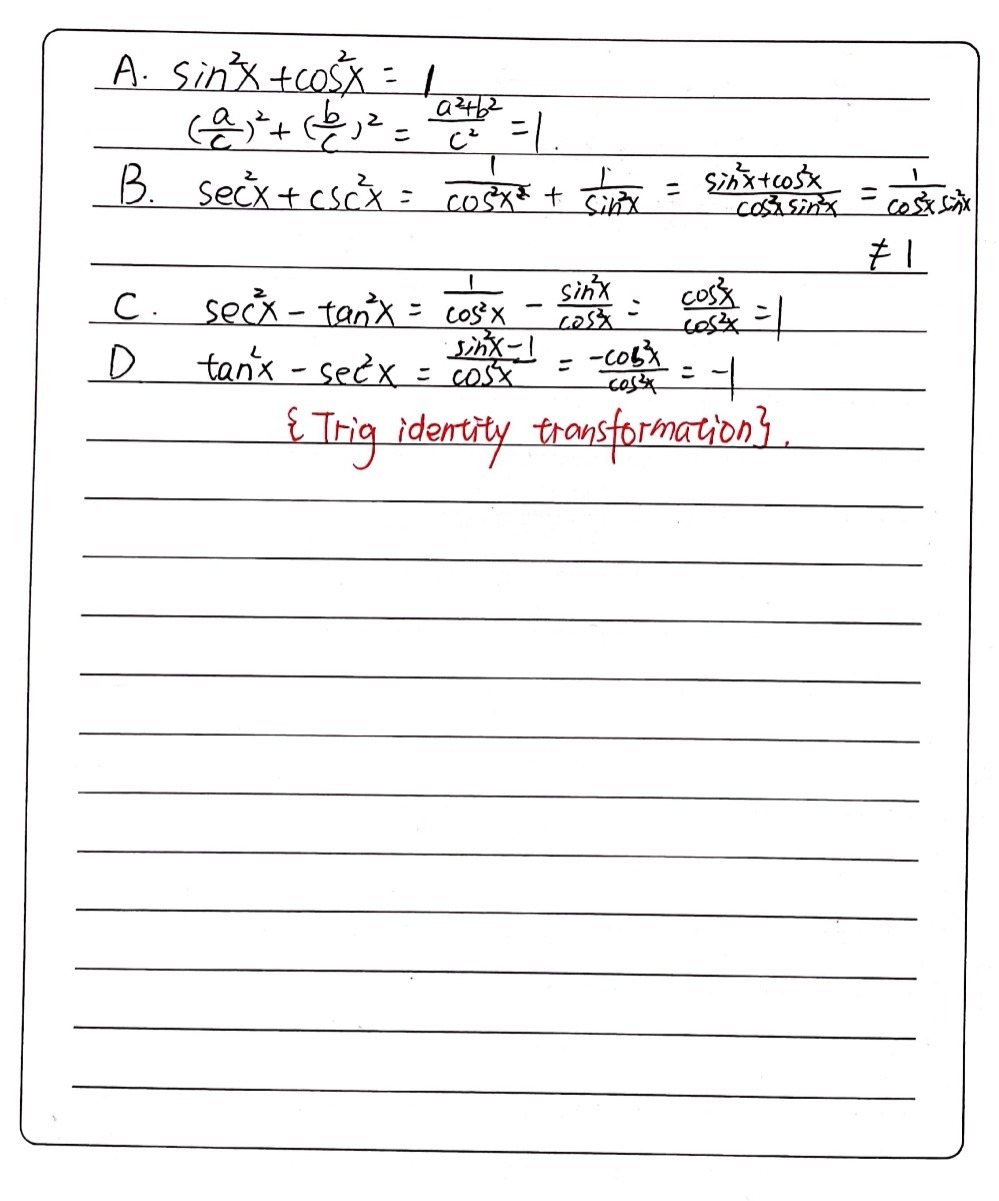 A. sin²x + cos²x = 1
(a/c)² + (b/c)² = (a²+b²)/c² = 1.
B. sec²x + csc²x = 1/cos²x² + 1/sin²x = (sin²x+cos²x)/(cos²x sin²x) = 1/(cos²x sin²x)
≠ 1
C. sec²x - tan²x = 1/cos²x - sin²x/cos²x = cos²x/cos²x = 1
D tan²x - sec²x = (sin²x-1)/cos²x = -cos²x/cos²x = -1
{ Trig identity transformation}.